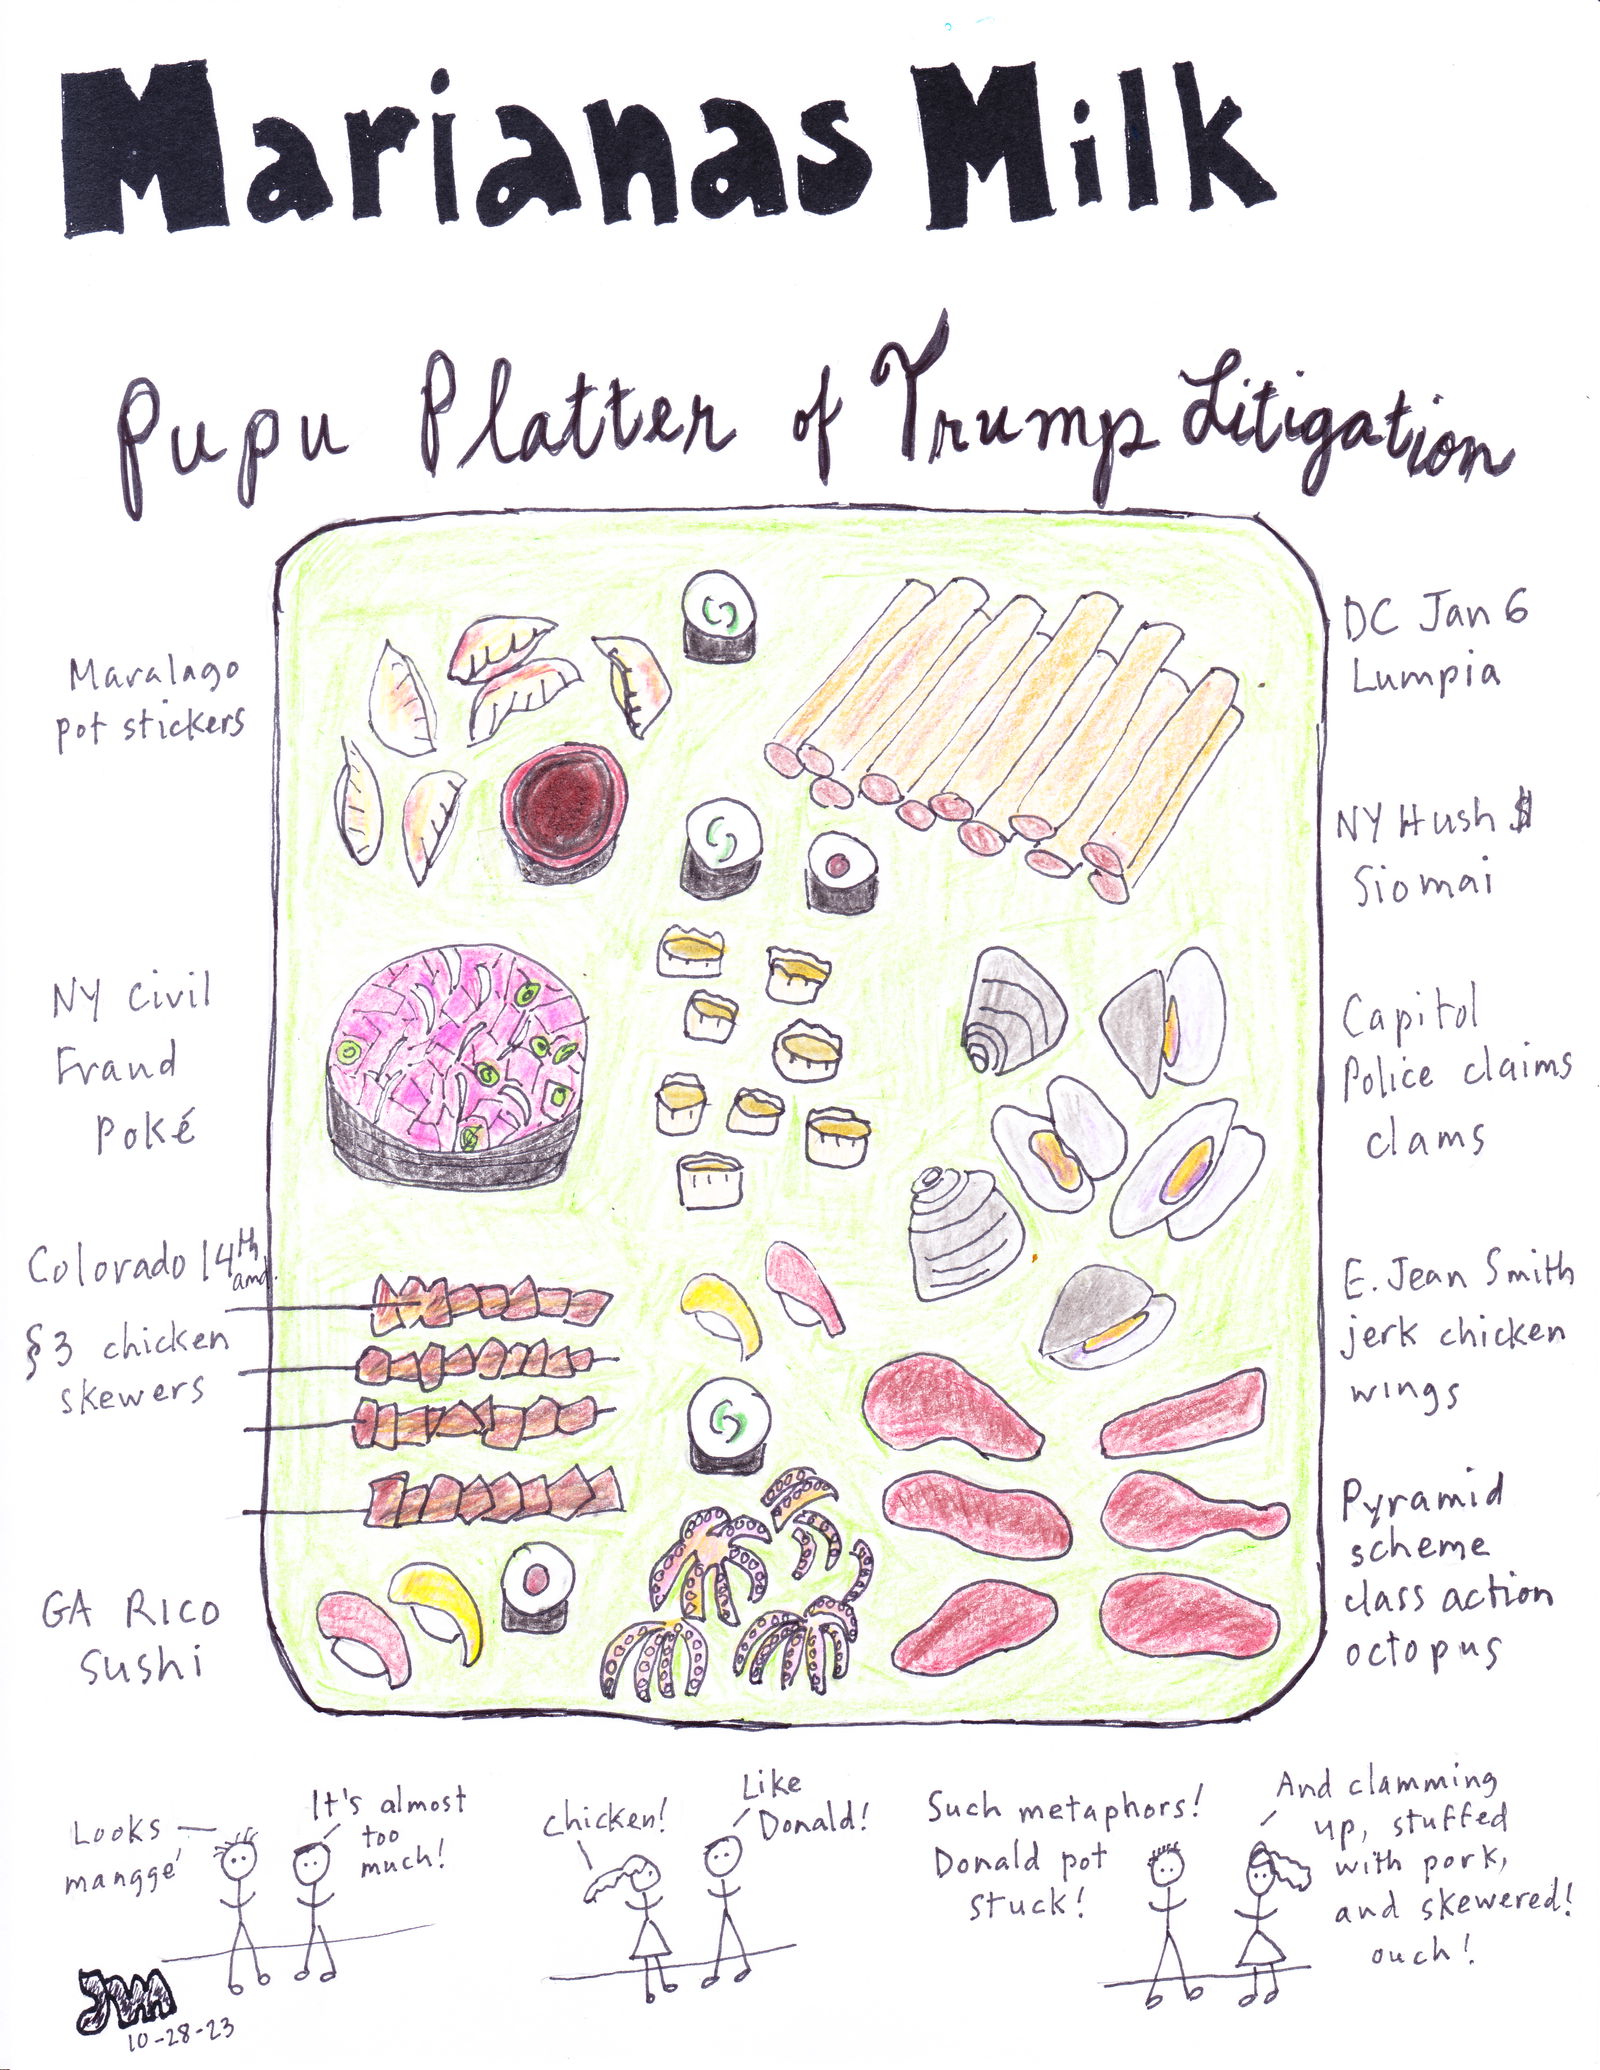 Marianas Milk
Pupu Platter of Trump Litigation
Maralago
pot stickers
NY Civil
Fraud
Poké
Colorado 14th
amd.
§3 chicken
skewers
GA RICO
Sushi
DC Jan 6
Lumpia
NY Hush $
Siomai
Capitol
Police claims
clams
E. Jean Smith
jerk chicken
wings
Pyramid
scheme
class action
octopus
Looks
manggé
It's almost
too
much!
chicken!
Like
Donald!
Such metaphors!
Donald pot
stuck!
And clamming
up, stuffed
with pork,
and skewered!
ouch!
10-28-23